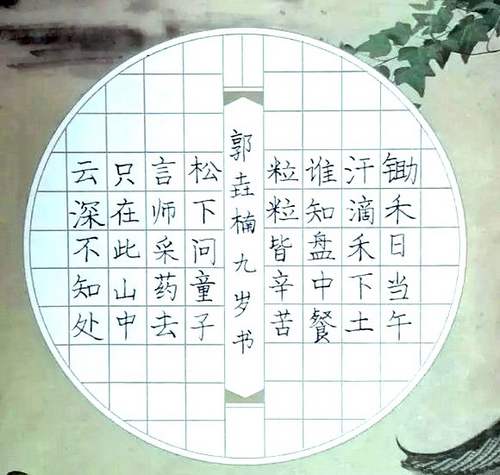 锄禾日当午
汗滴禾下土
谁知盘中餐
粒粒皆辛苦
郭垚楠九岁书
松下问童子
言师采药去
只在此山中
云深不知处